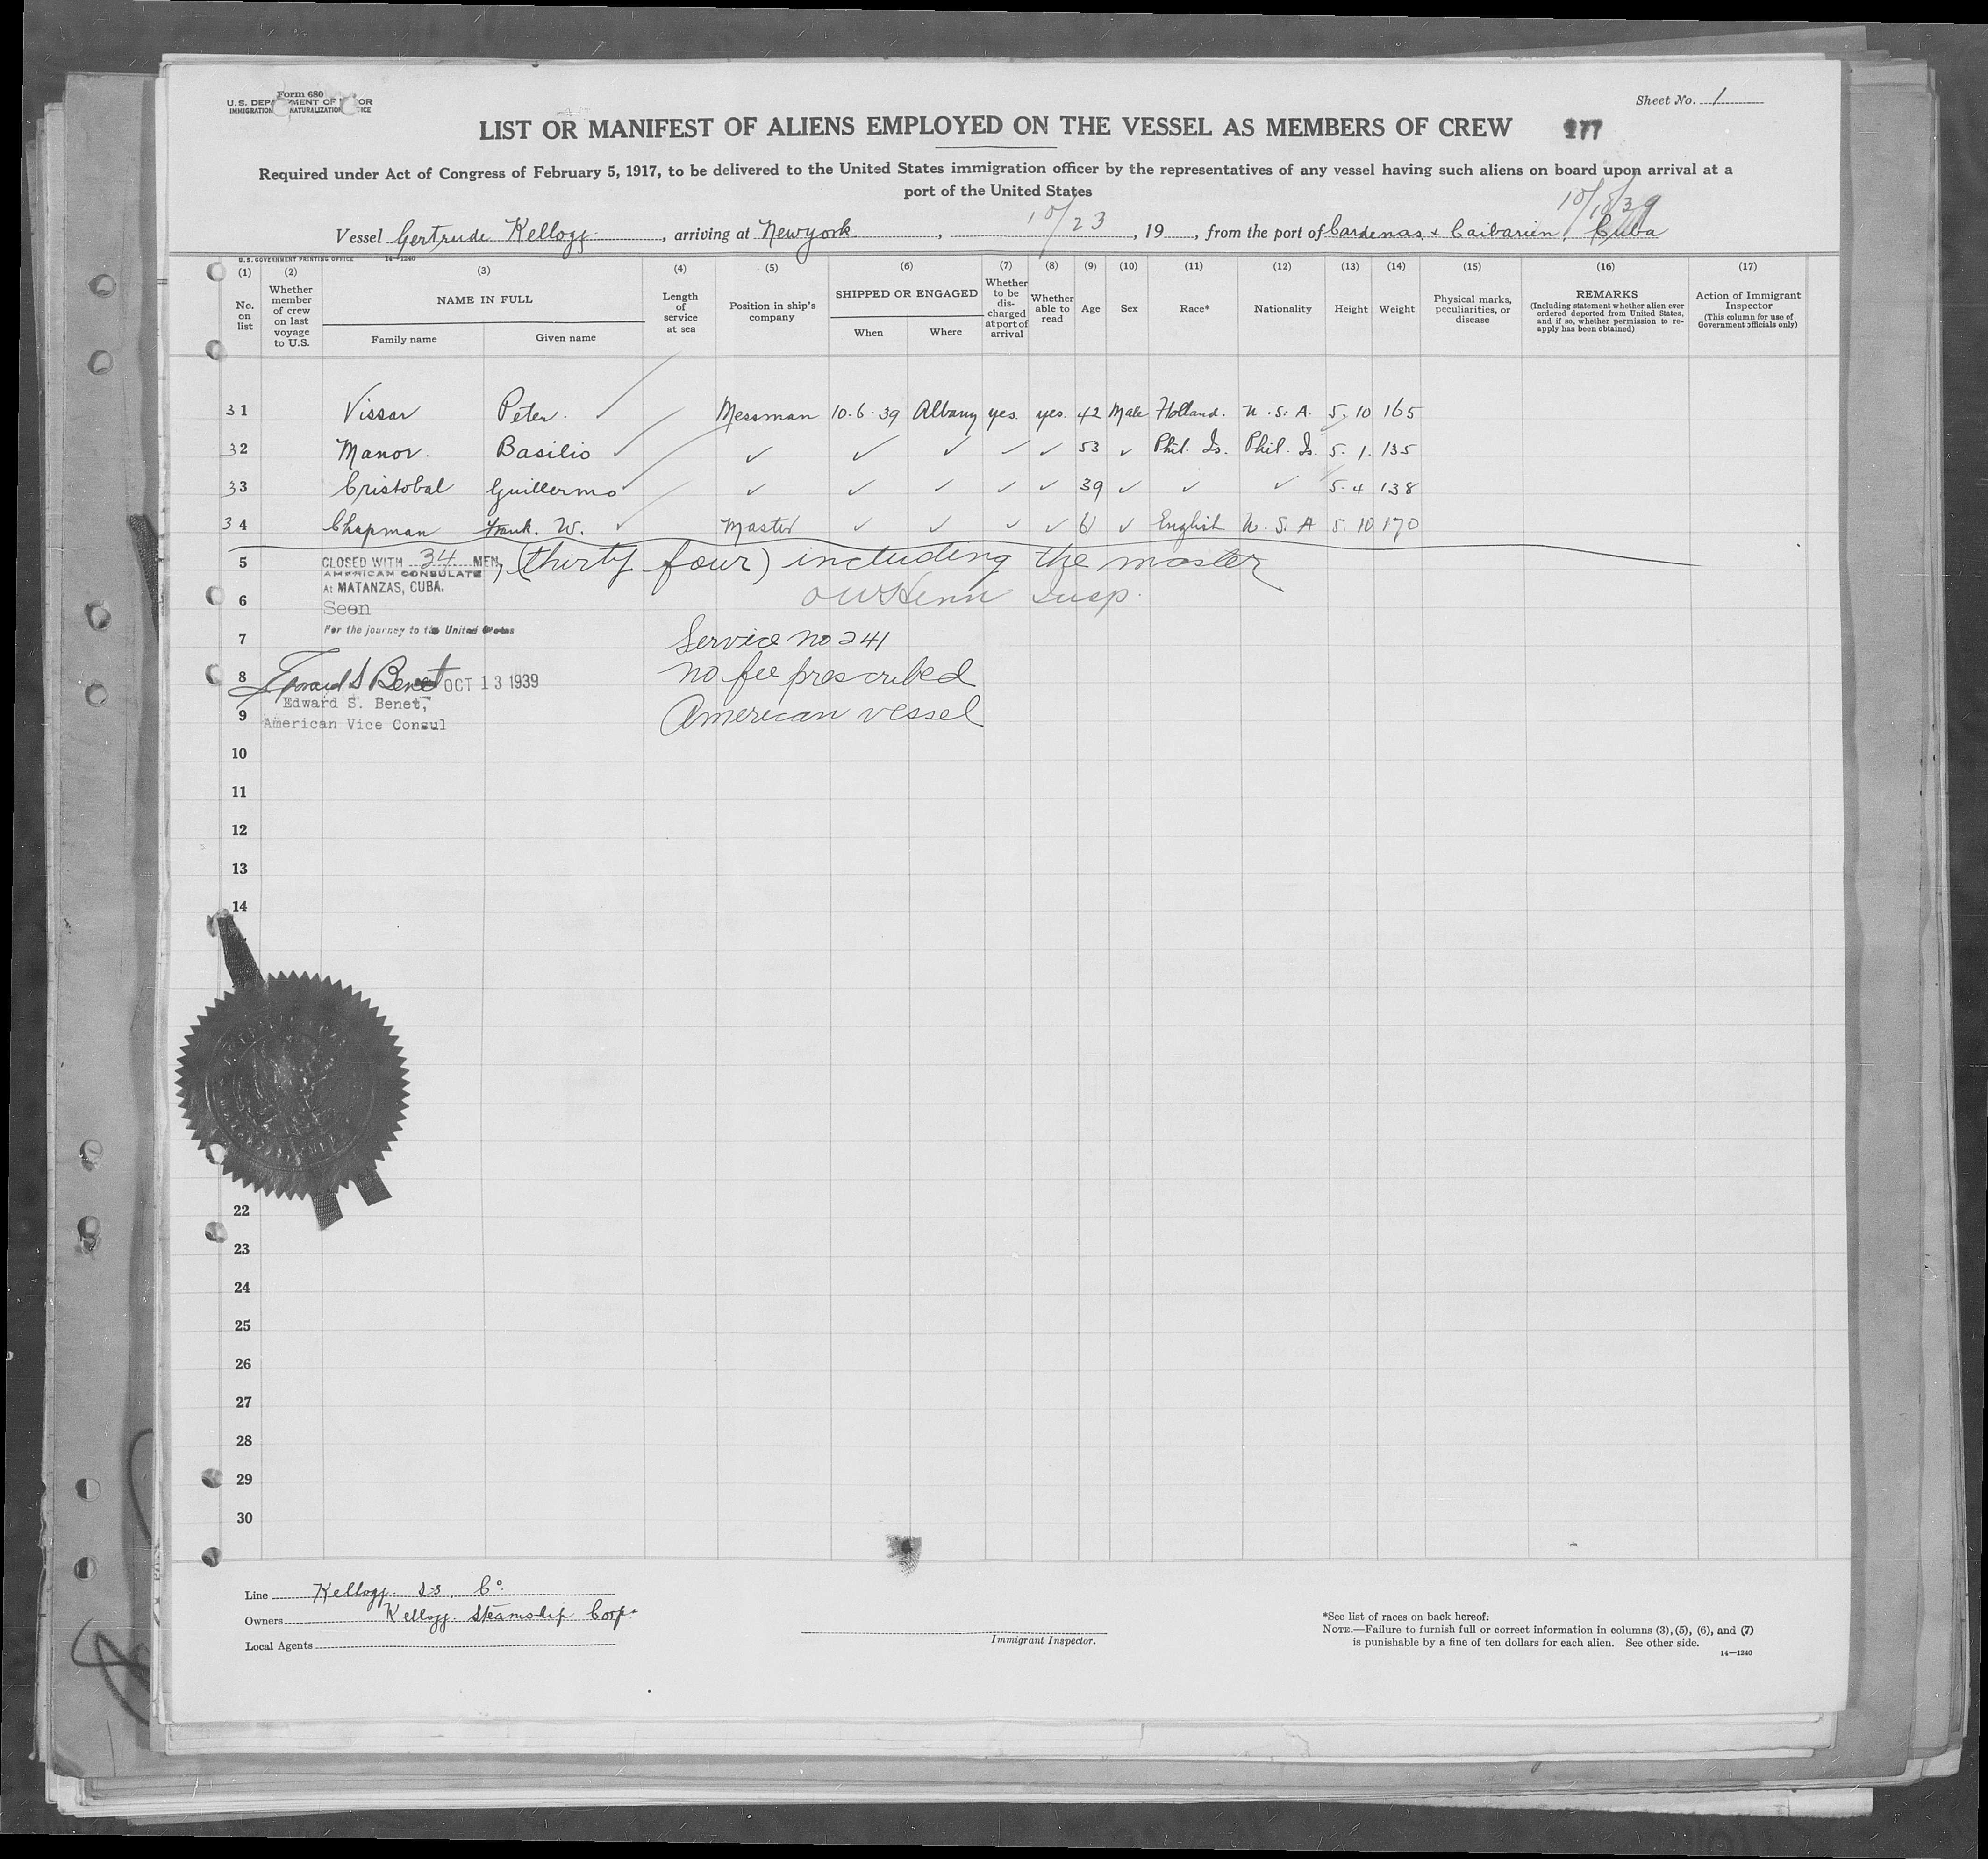 Form 680
U.S. DEPARTMENT OF LABOR
IMMIGRATION NATURALIZATION SERVICE
Sheet No. 1
LIST OR MANIFEST OF ALIENS EMPLOYED ON THE VESSEL AS MEMBERS OF CREW 277
Required under Act of Congress of February 5, 1917, to be delivered to the United States immigration officer by the representatives of any vessel having such aliens on board upon arrival at a
port of the United States
10/18/39
Vessel Gertrude Kellogg, arriving at Newyork, 10/23, 19, from the port of Cardenas & Caibarien, Cuba
U.S. GOVERNMENT PRINTING OFFICE 14-1240
(1) (2) (3) (4) (5) (6) (7) (8) (9) (10) (11) (12) (13) (14) (15) (16) (17)
No. on list
Whether member of crew on last voyage to U.S.
NAME IN FULL
Family name Given name
Length of service at sea
Position in ship's company
SHIPPED OR ENGAGED
When Where
Whether to be discharged at port of arrival
Whether able to read
Age
Sex
Race*
Nationality
Height
Weight
Physical marks, peculiarities, or disease
REMARKS
(Including statement whether alien ever ordered deported from United States, and if so, whether permission to re-apply has been obtained)
Action of Immigrant Inspector
(This column for use of Government officials only)
31 Vissar Peter. Messman 10-6-39 Albany yes. yes. 42 Male Holland. U.S.A. 5.10 165
32 Manor. Basilio ✓ ✓ ✓ ✓ ✓ 53 ✓ Phil. Is. Phil. Is. 5.1. 135
33 Cristobal Guillermo ✓ ✓ ✓ ✓ ✓ 39 ✓ ✓ ✓ 5.4 138
34 Chapman Frank. W. Master ✓ ✓ ✓ ✓ 61 ✓ English U.S.A 5.10 170
5 CLOSED WITH 34 MEN, (thirty four) including the master
AMERICAN CONSULATE
At MATANZAS, CUBA.
6 Seen
Insp.
For the journey to the United States
7 Service no 241
8 Edward S Benet OCT 13 1939 no fee prescribed
Edward S. Benet,
9 American Vice Consul American vessel
10
11
12
13
14
22
23
24
25
26
27
28
29
30
Line Kellogg. S.S. Co.
Owners Kellogg. Steamship Corp.
Local Agents
Immigrant Inspector.
*See list of races on back hereof.
NOTE.—Failure to furnish full or correct information in columns (3), (5), (6), and (7)
is punishable by a fine of ten dollars for each alien. See other side.
14—1240